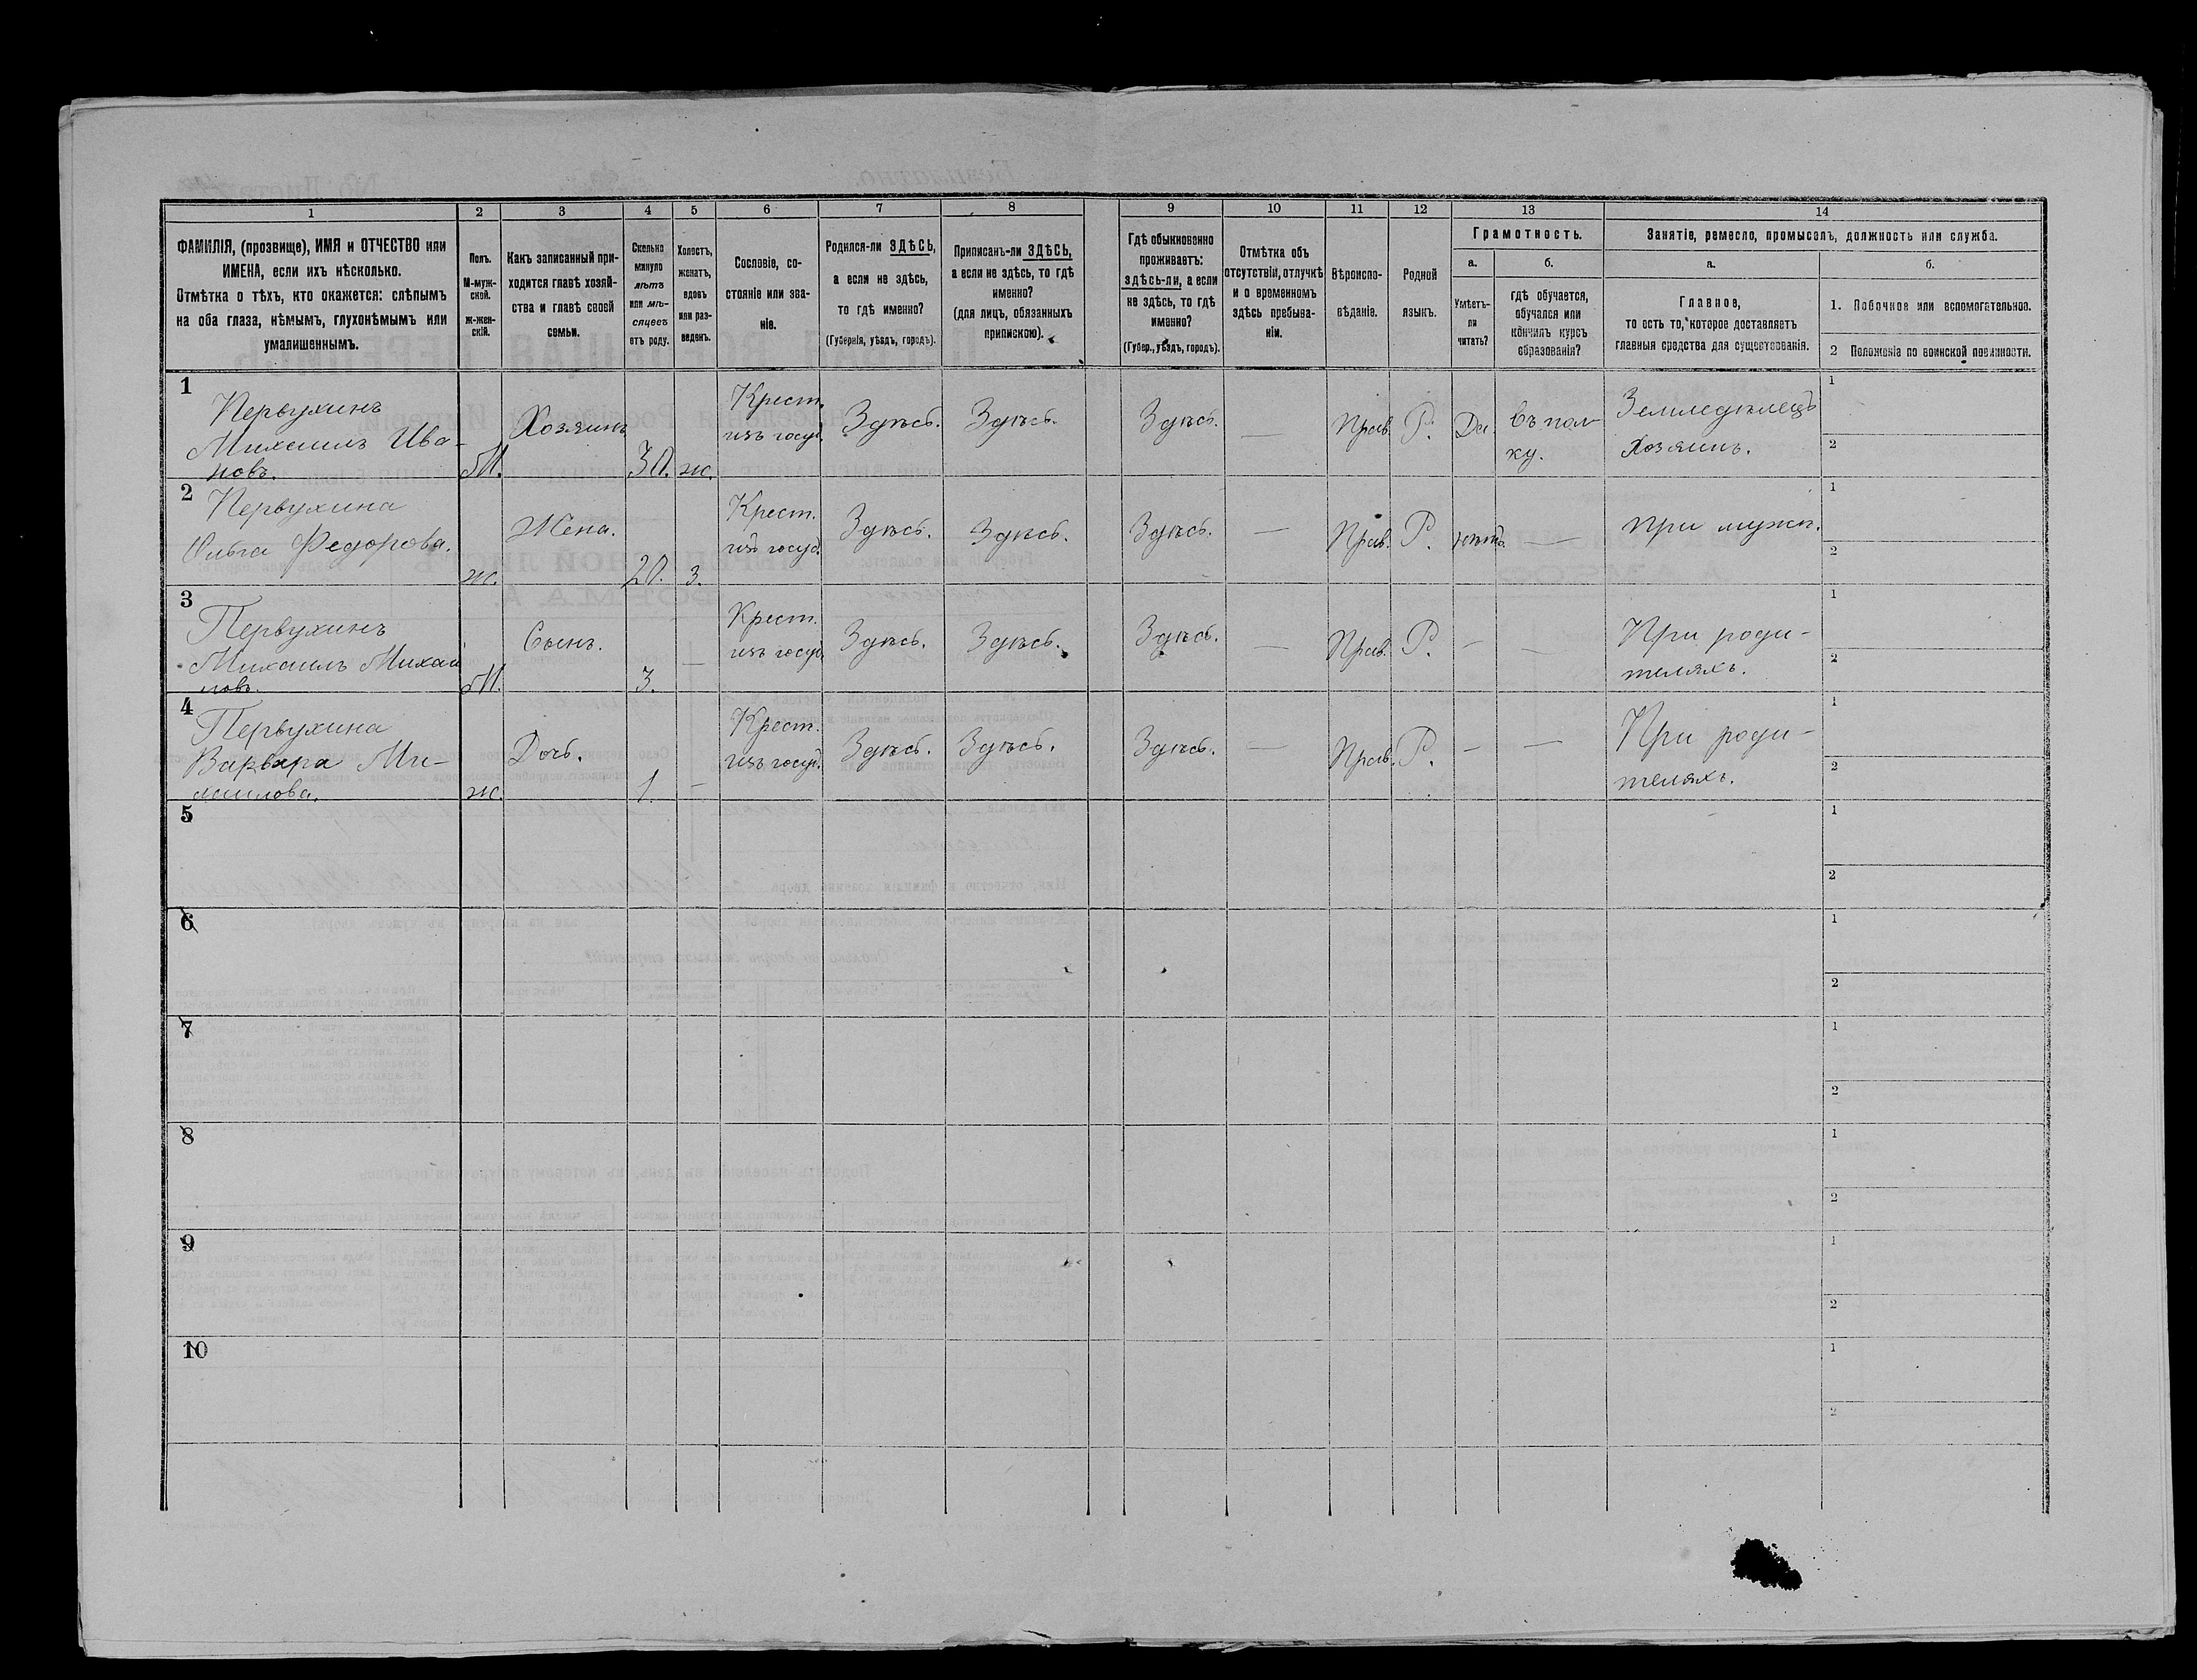 1
2
3
4
5
6
7
8
9
10
11
12
13
14
ФАМИЛІЯ, (прозвище), ИМЯ и ОТЧЕСТВО или
ИМЕНА, если ихъ нѣсколько.
Отмѣтка о тѣхъ, кто окажется: слѣпымъ
на оба глаза, нѣмымъ, глухонѣмымъ или
умалишеннымъ.
Полъ.
М-муж-
ской.
ж-жен-
скій.
Какъ записанный при-
ходится главѣ хозяй-
ства и главѣ своей
семьи.
Сколько
минуло
лѣтъ
или мѣ-
сяцевъ
отъ роду.
Холостъ,
женатъ,
вдовъ
или раз-
веденъ.
Сословіе, со-
стояніе или зва-
ніе.
Родился-ли ЗДѢСЬ,
а если не здѣсь,
то гдѣ именно?
(Губернія, уѣздъ, городъ).
Приписанъ-ли ЗДѢСЬ,
а если не здѣсь, то гдѣ
именно?
(для лицъ, обязанныхъ
припискою).
Гдѣ обыкновенно
проживаетъ:
здѣсь-ли, а если
не здѣсь, то гдѣ
именно?
(Губер., уѣздъ, городъ).
Отмѣтка объ
отсутствіи, отлучкѣ
и о временномъ
здѣсь пребыва-
ніи.
Вѣроиспо-
вѣданіе.
Родной
языкъ.
Грамотность.
а.
Умѣетъ-
ли
читать?
б.
гдѣ обучается,
обучался или
кончилъ курсъ
образованія?
Занятіе, ремесло, промыселъ, должность или служба.
а.
Главное,
то есть то, которое доставляетъ
главныя средства для существованія.
б.
1. Побочное или вспомогательное.
2 Положеніе по воинской повинности.
1
Первухинъ
Михаилъ Ива-
новъ.
М.
Хозяинъ
30.
ж.
Крест.
изъ госуд.
Здѣсь.
Здѣсь.
Здѣсь.
—
Прав.
Р.
Да.
Въ пол-
ку.
Земледѣлецъ
Хозяинъ.
1
2
2
Первухина
Ольга Федорова.
ж.
Жена.
20.
З.
Крест.
изъ госуд.
Здѣсь.
Здѣсь.
Здѣсь.
—
Прав.
Р.
нѣтъ.
—
При мужѣ.
1
2
3
Первухинъ
Михаилъ Михаи
ловъ.
М.
Сынъ.
3.
—
Крест.
изъ госуд.
Здѣсь.
Здѣсь.
Здѣсь.
—
Прав.
Р.
—
—
При роди-
теляхъ.
1
2
4
Первухина
Варвара Ми-
хаилова.
ж.
Дочь.
1.
—
Крест.
изъ госуд.
Здѣсь.
Здѣсь.
Здѣсь.
—
Прав.
Р.
—
—
При роди-
теляхъ.
1
2
5
1
2
6
1
2
7
1
2
8
1
2
9
1
2
10
1
2